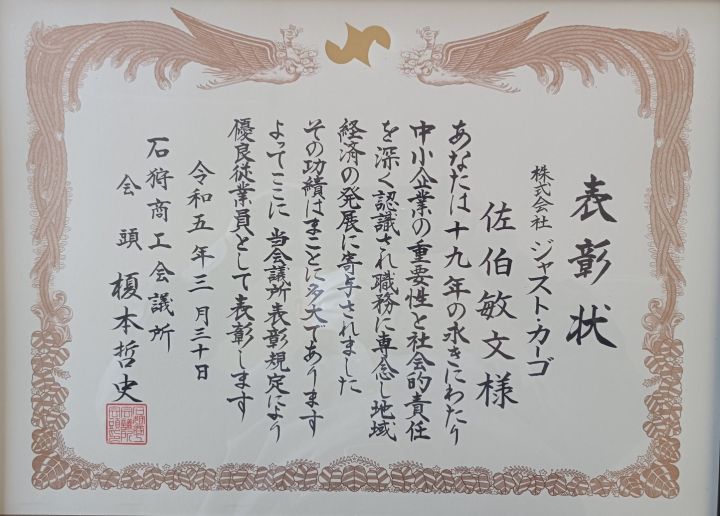 表彰状
株式会社 ジャスト・カーゴ
佐伯敏文様
あなたは十九年の永きにわたり
中小企業の重要性と社会的責任
を深く認識され職務に専念し地域
経済の発展に寄与されました
その功績はまことに多大であります
よってここに当会議所表彰規定により
優良従業員として表彰します
令和五年三月三十日
石狩商工会議所
会頭 榎本哲史